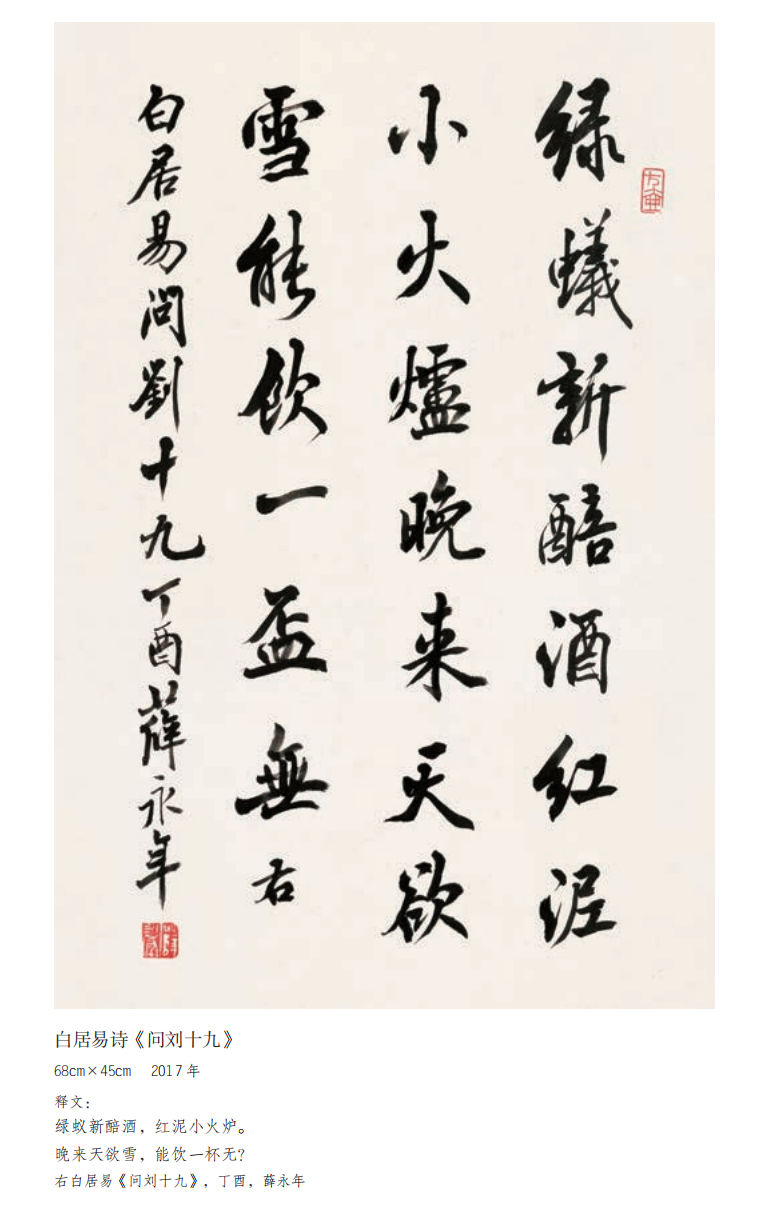 绿蟻新醅酒红泥
小火爐晚来天欲
雪能飲一盃無右
白居易問劉十九丁酉薛永年
白居易诗《问刘十九》
68cm×45cm 2017年
释文：
绿蚁新醅酒，红泥小火炉。
晚来天欲雪，能饮一杯无？
右白居易《问刘十九》，丁酉，薛永年